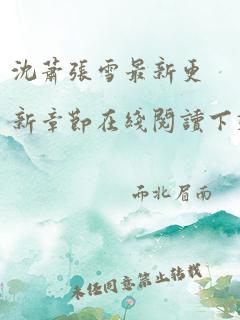 沈蕭張雪最新更
新章節在綫閱讀下
而北眉南
未经同意禁止转载